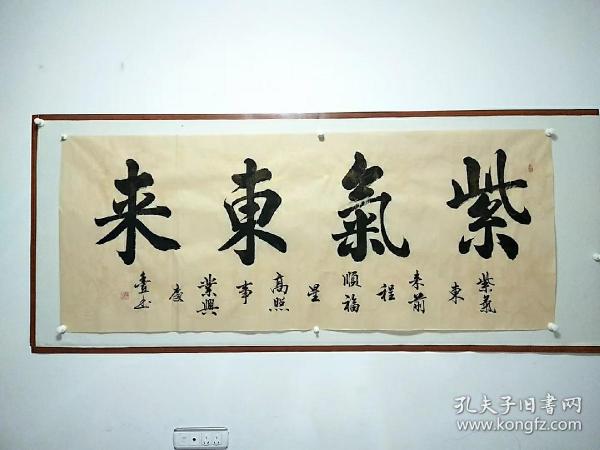 紫氣東来
紫氣
東
来前
程
順福
星
高照
事
業興
慶
孔夫子旧書网
www.kongfz.com